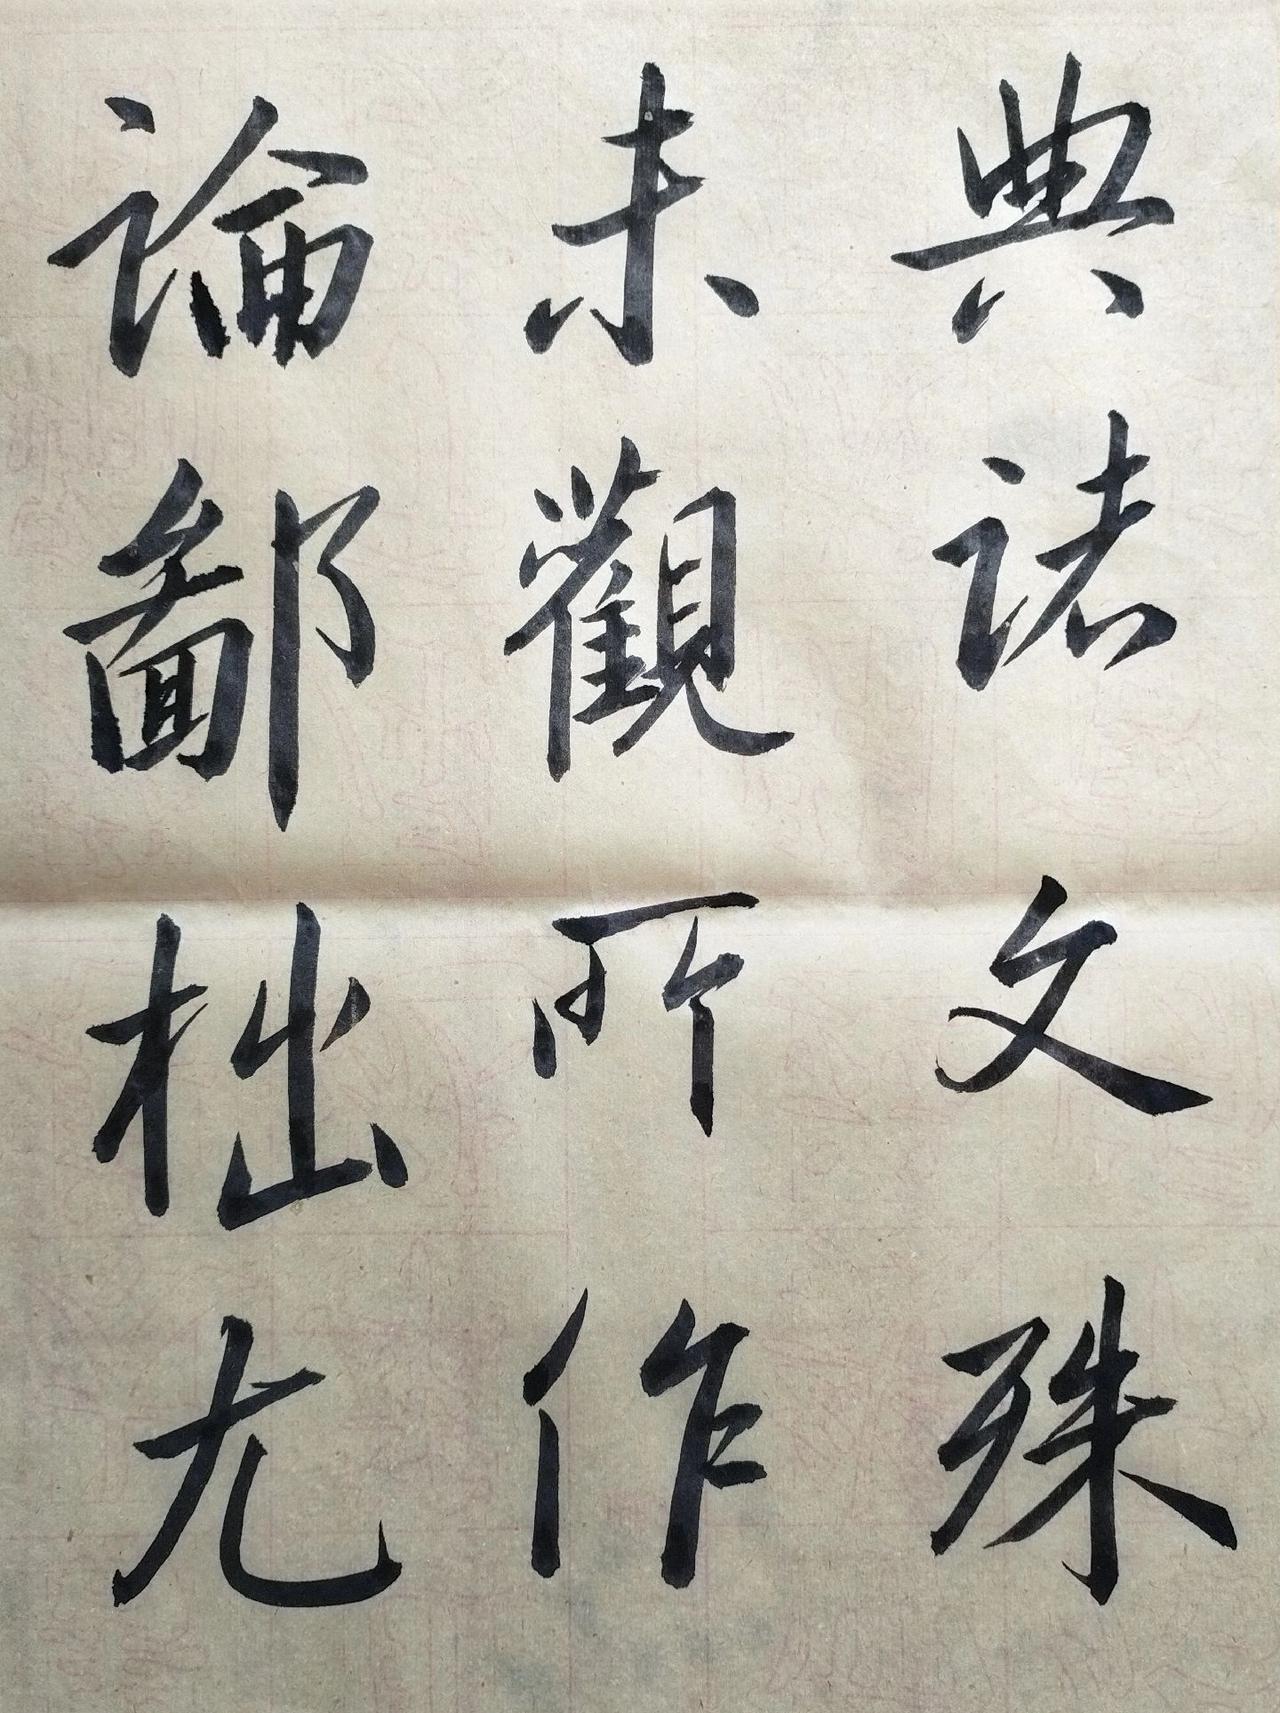 典諸文殊
未觀所作
論鄙拙尤